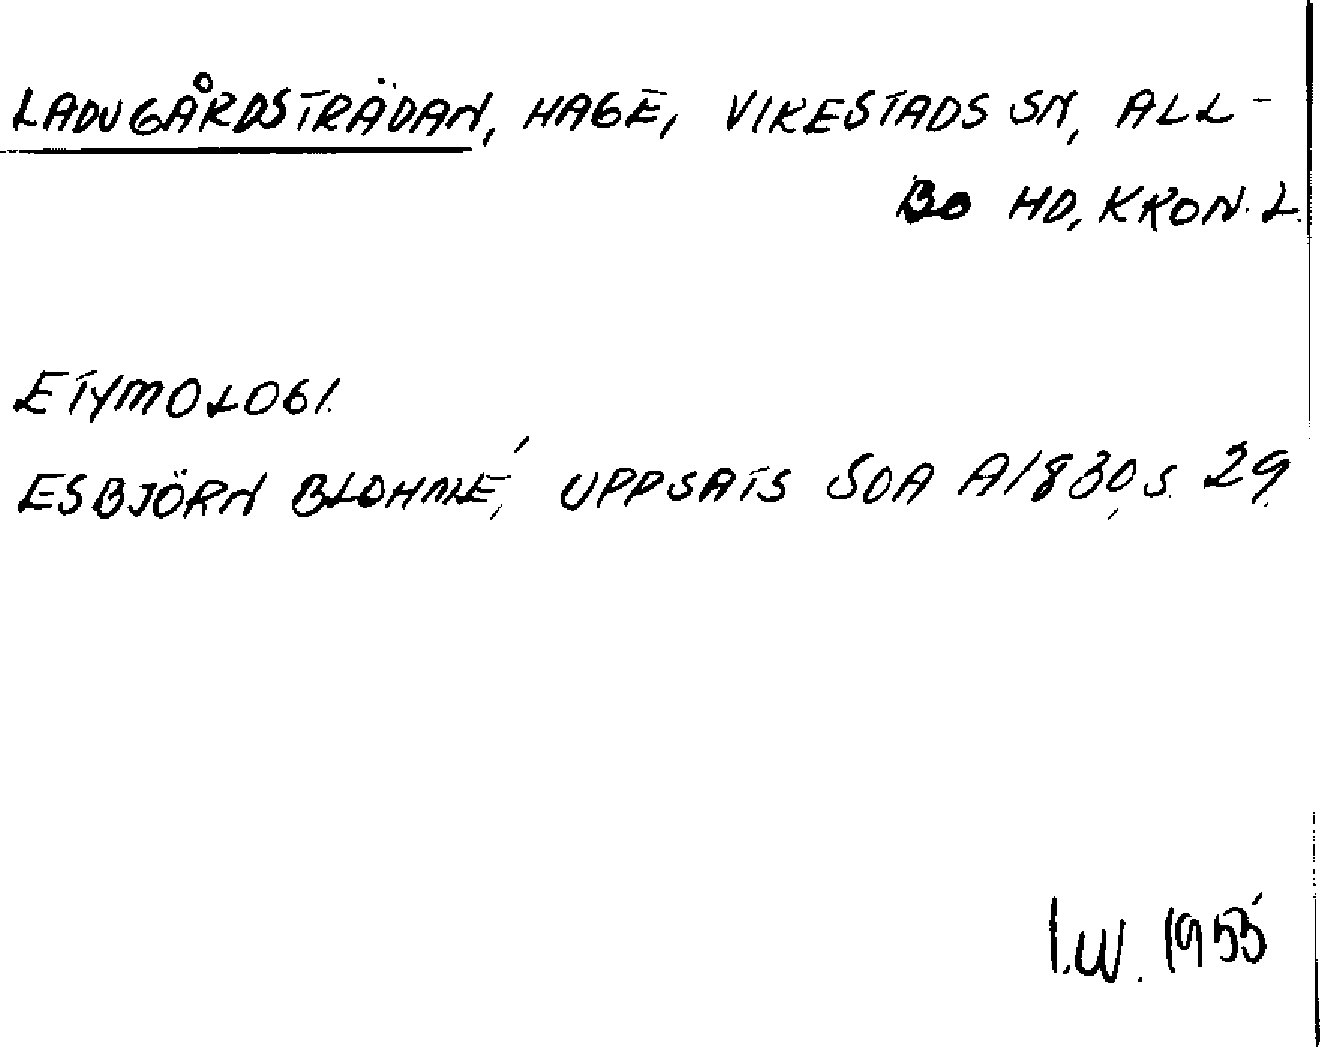 LADUGÅRDSTRÄDAN, HAGE, VIKESTADS SN, ALL-
BO HD, KRON. L.
ETYMOLOGI.
ESBJÖRN BLOHMÉ, UPPSATS SOA A1830, S. 29.
I.W. 1955